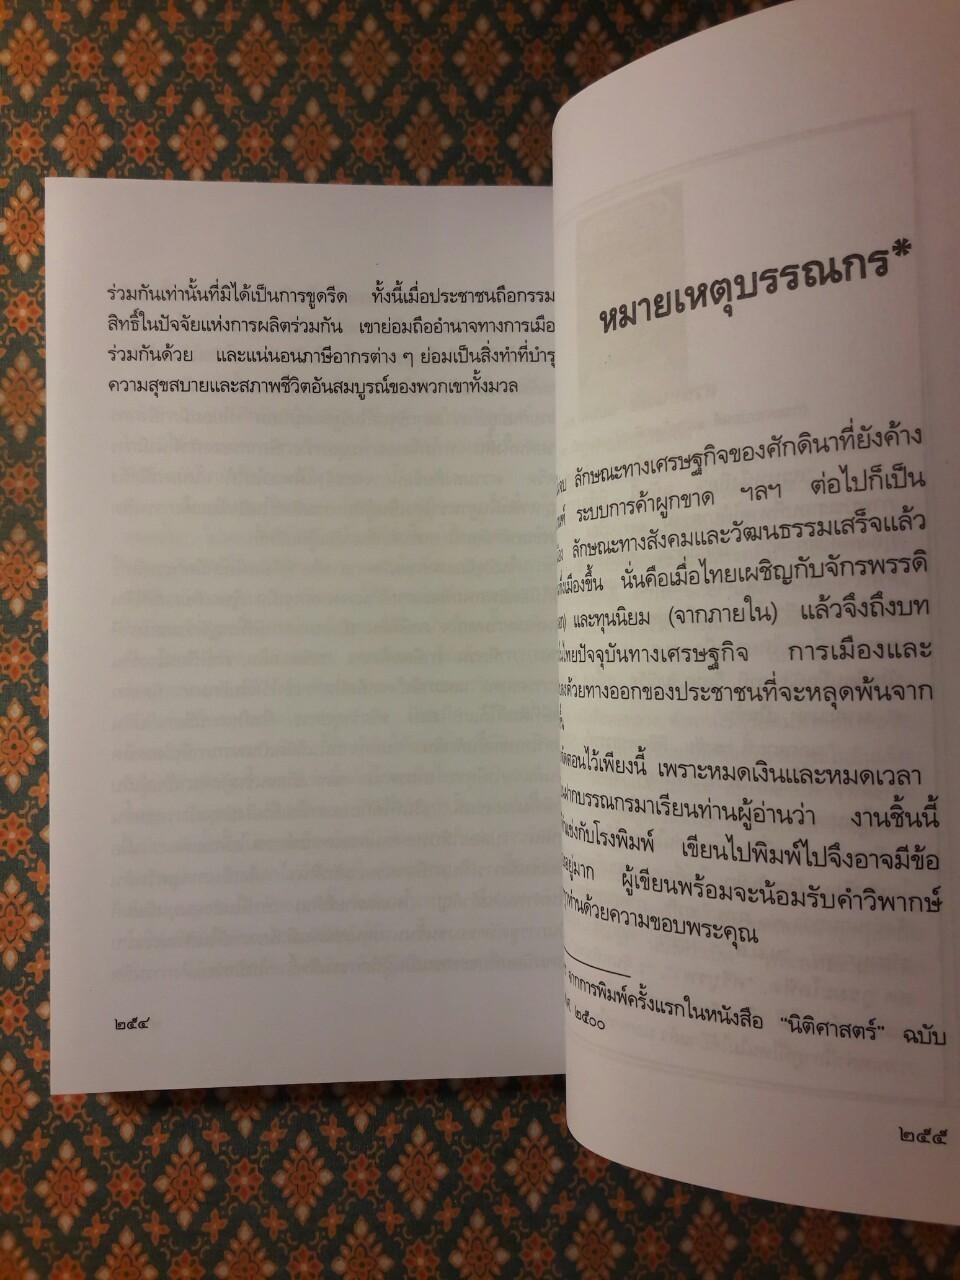 ร่วมกันเท่านั้นที่มิได้เป็นการขูดรีด ทั้งนี้เมื่อประชาชนถือกรรม
สิทธิ์ในปัจจัยแห่งการผลิตร่วมกัน เขาย่อมถืออำนาจทางการเมือ
ร่วมกันด้วย และแน่นอนภาษีอากรต่าง ๆ ย่อมเป็นสิ่งทำที่บำรุ
ความสุขสบายและสภาพชีวิตอันสมบูรณ์ของพวกเขาทั้งมวล
๒๕๔
หมายเหตุบรรณกร*
ลักษณะทางเศรษฐกิจของศักดินาที่ยังค้าง
ระบบการค้าผูกขาด ฯลฯ ต่อไปก็เป็น
ลักษณะทางสังคมและวัฒนธรรมเสร็จแล้ว
เมืองขึ้น นั่นคือเมื่อไทยเผชิญกับจักรพรรดิ
และทุนนิยม (จากภายใน) แล้วจึงถึงบท
ไทยปัจจุบันทางเศรษฐกิจ การเมืองและ
ด้วยทางออกของประชาชนที่จะหลุดพ้นจาก
ตอนไว้เพียงนี้ เพราะหมดเงินและหมดเวลา
บรรณกรมาเรียนท่านผู้อ่านว่า งานชิ้นนี้
แข่งกับโรงพิมพ์ เขียนไปพิมพ์ไปจึงอาจมีข้อ
อยู่มาก ผู้เขียนพร้อมจะน้อมรับคำวิพากษ์
ท่านด้วยความขอบพระคุณ
จากการพิมพ์ครั้งแรกในหนังสือ "นิติศาสตร์" ฉบับ
๒๕๐๐
๒๕๕